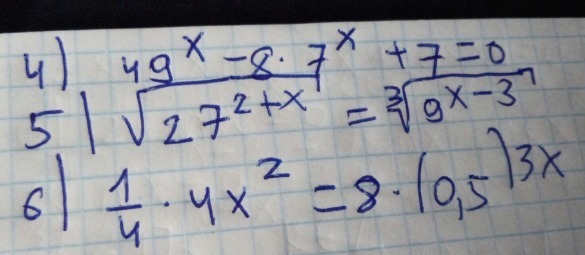 4) 49^x - 8 · 7^x + 7 = 0
5) √(27^(2+x)) = ∛(9^(x-3))
6) 1/4 · 4x^2 = 8 · (0,5)^(3x)